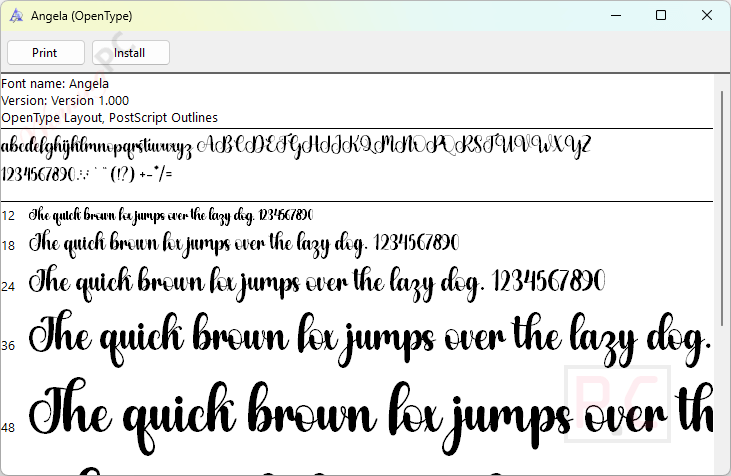 Angela (OpenType)
Print Install
Font name: Angela
Version: Version 1.000
OpenType Layout, PostScript Outlines
abcdefghijklmnopqrstuvwxyz ABCDEFGHIJKLMNOPQRSTUVWXYZ
1234567890.:,; ' " (!?) +-*/=
12 The quick brown fox jumps over the lazy dog. 1234567890
18 The quick brown fox jumps over the lazy dog. 1234567890
24 The quick brown fox jumps over the lazy dog. 1234567890
36 The quick brown fox jumps over the lazy dog.
48 The quick brown fox jumps over th